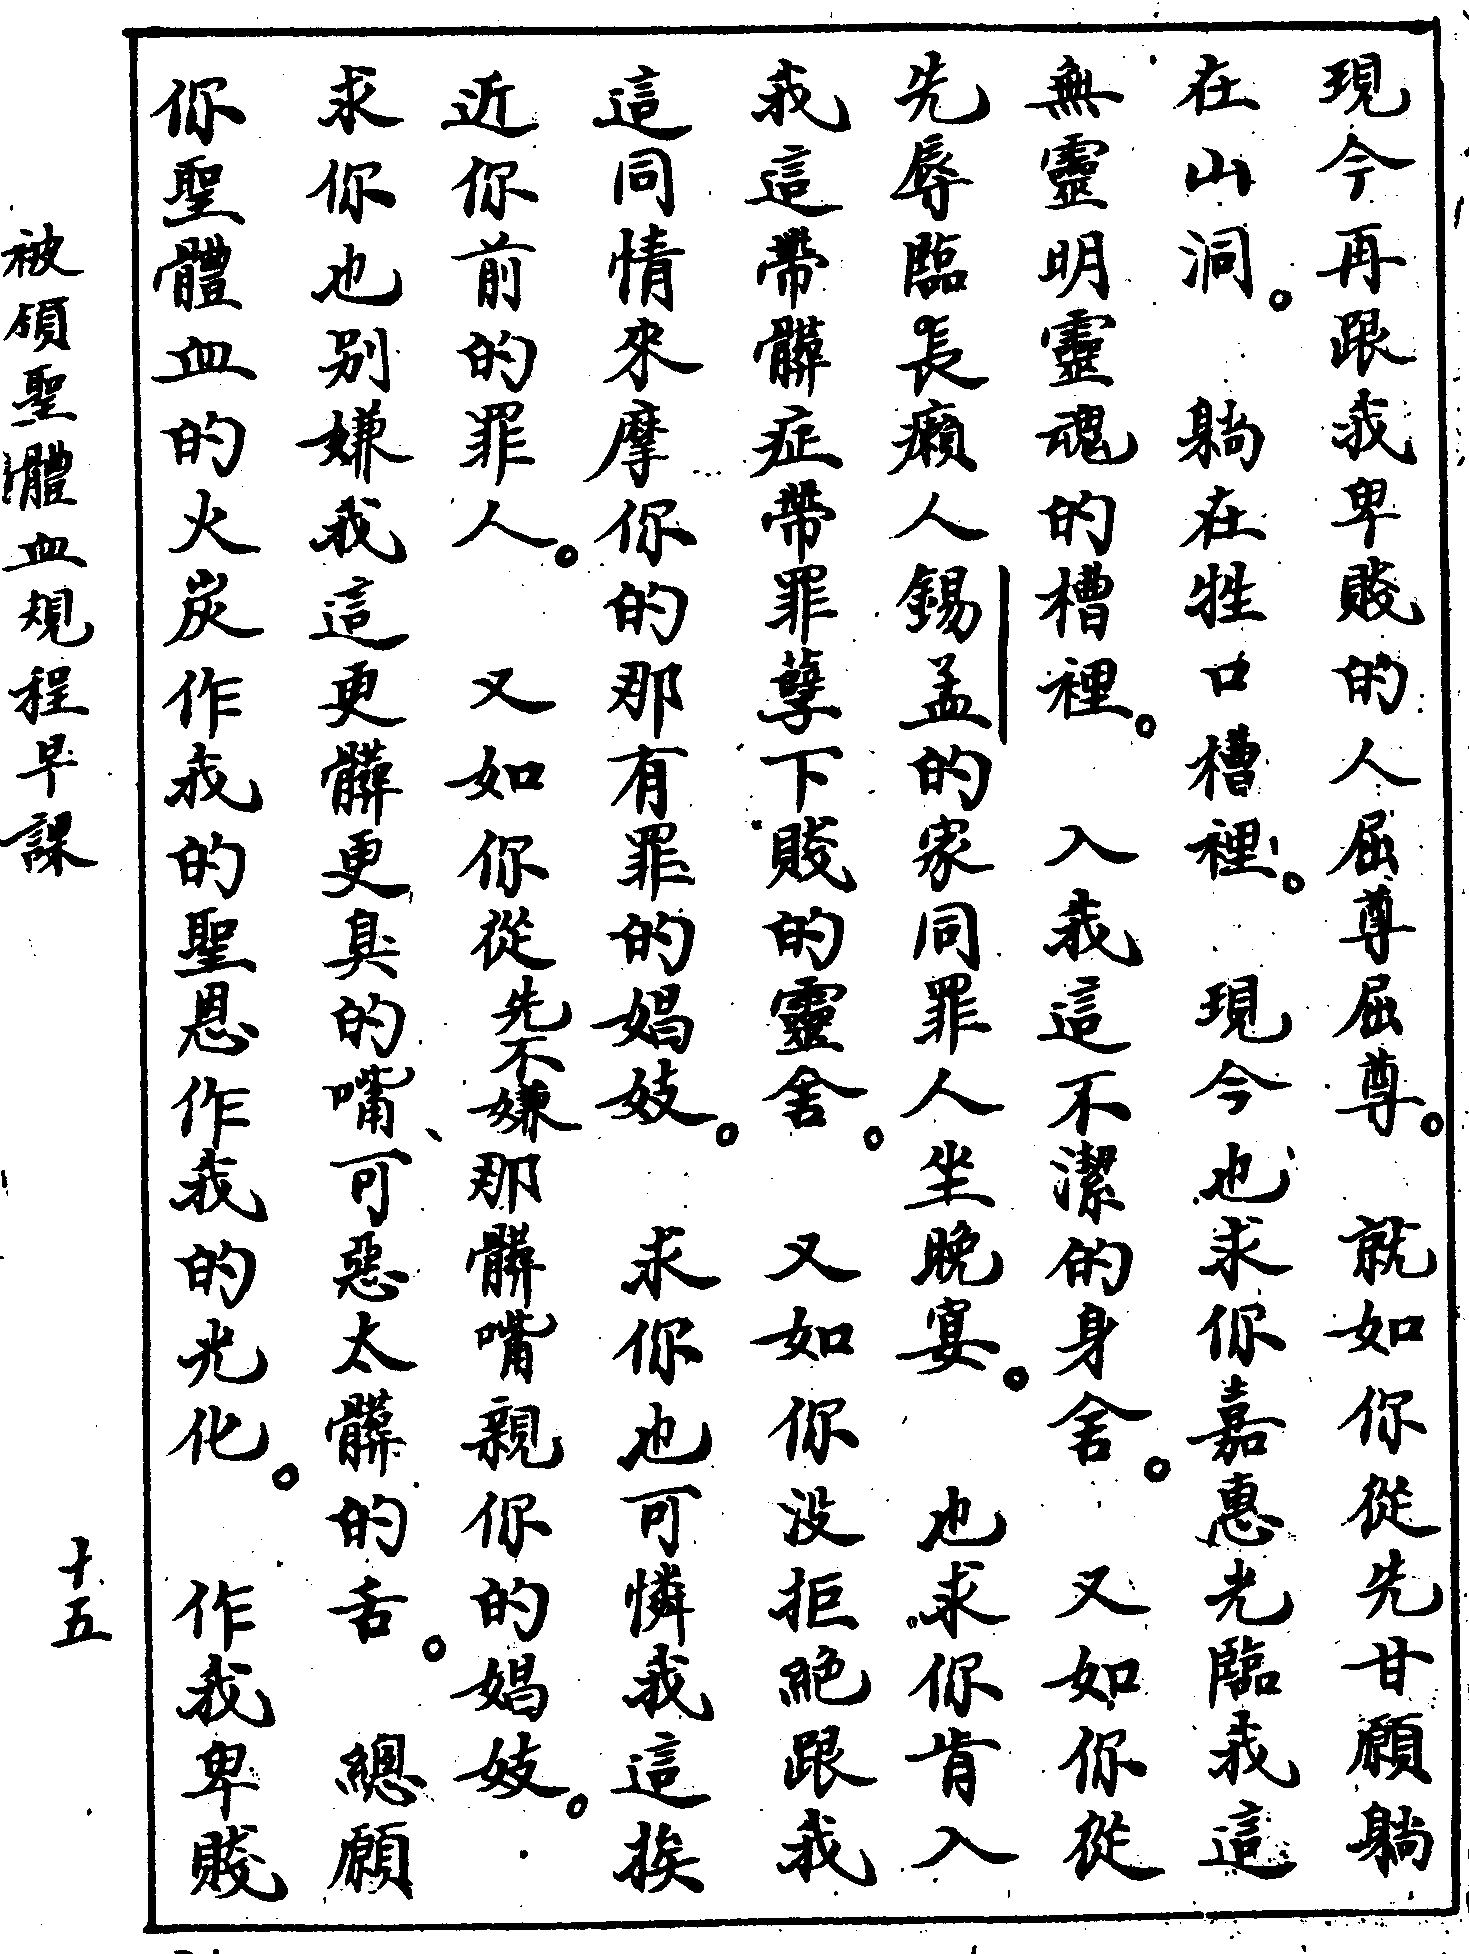 現今再跟我卑賤的人屈尊屈尊。就如你從先甘願躺
在山洞。躺在牲口槽裡。現今也求你嘉惠光臨我這
無靈明靈魂的槽裡。入我這不潔的身舍。又如你從
先辱臨長癩人錫孟的家同罪人坐晚宴。也求你肯入
我這帶髒症帶罪孽下賤的靈舍。又如你没拒絕跟我
這同情來摩你的那有罪的娼妓。求你也可憐我這挨
近你前的罪人。又如你從先不嫌那髒嘴親你的娼妓。
求你也别嫌我這更髒更臭的嘴、可惡太髒的舌。總願
你聖體血的火炭作我的聖恩作我的光化。作我卑賤
被領聖體血規程早課
十五